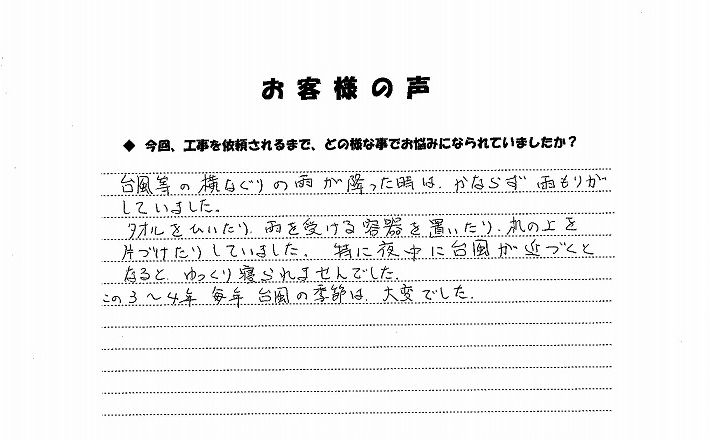 お客様の声
◆ 今回、工事を依頼されるまで、どの様な事でお悩みになられていましたか？
台風等の横なぐりの雨が降った時は、かならず雨もりが
していました。
タオルをひいたり、雨を受ける容器を置いたり、机の上を
片づけたりしていました。特に夜中に台風が近づくと
なると、ゆっくり寝られませんでした。
この3～4年 毎年 台風の季節は、大変でした。